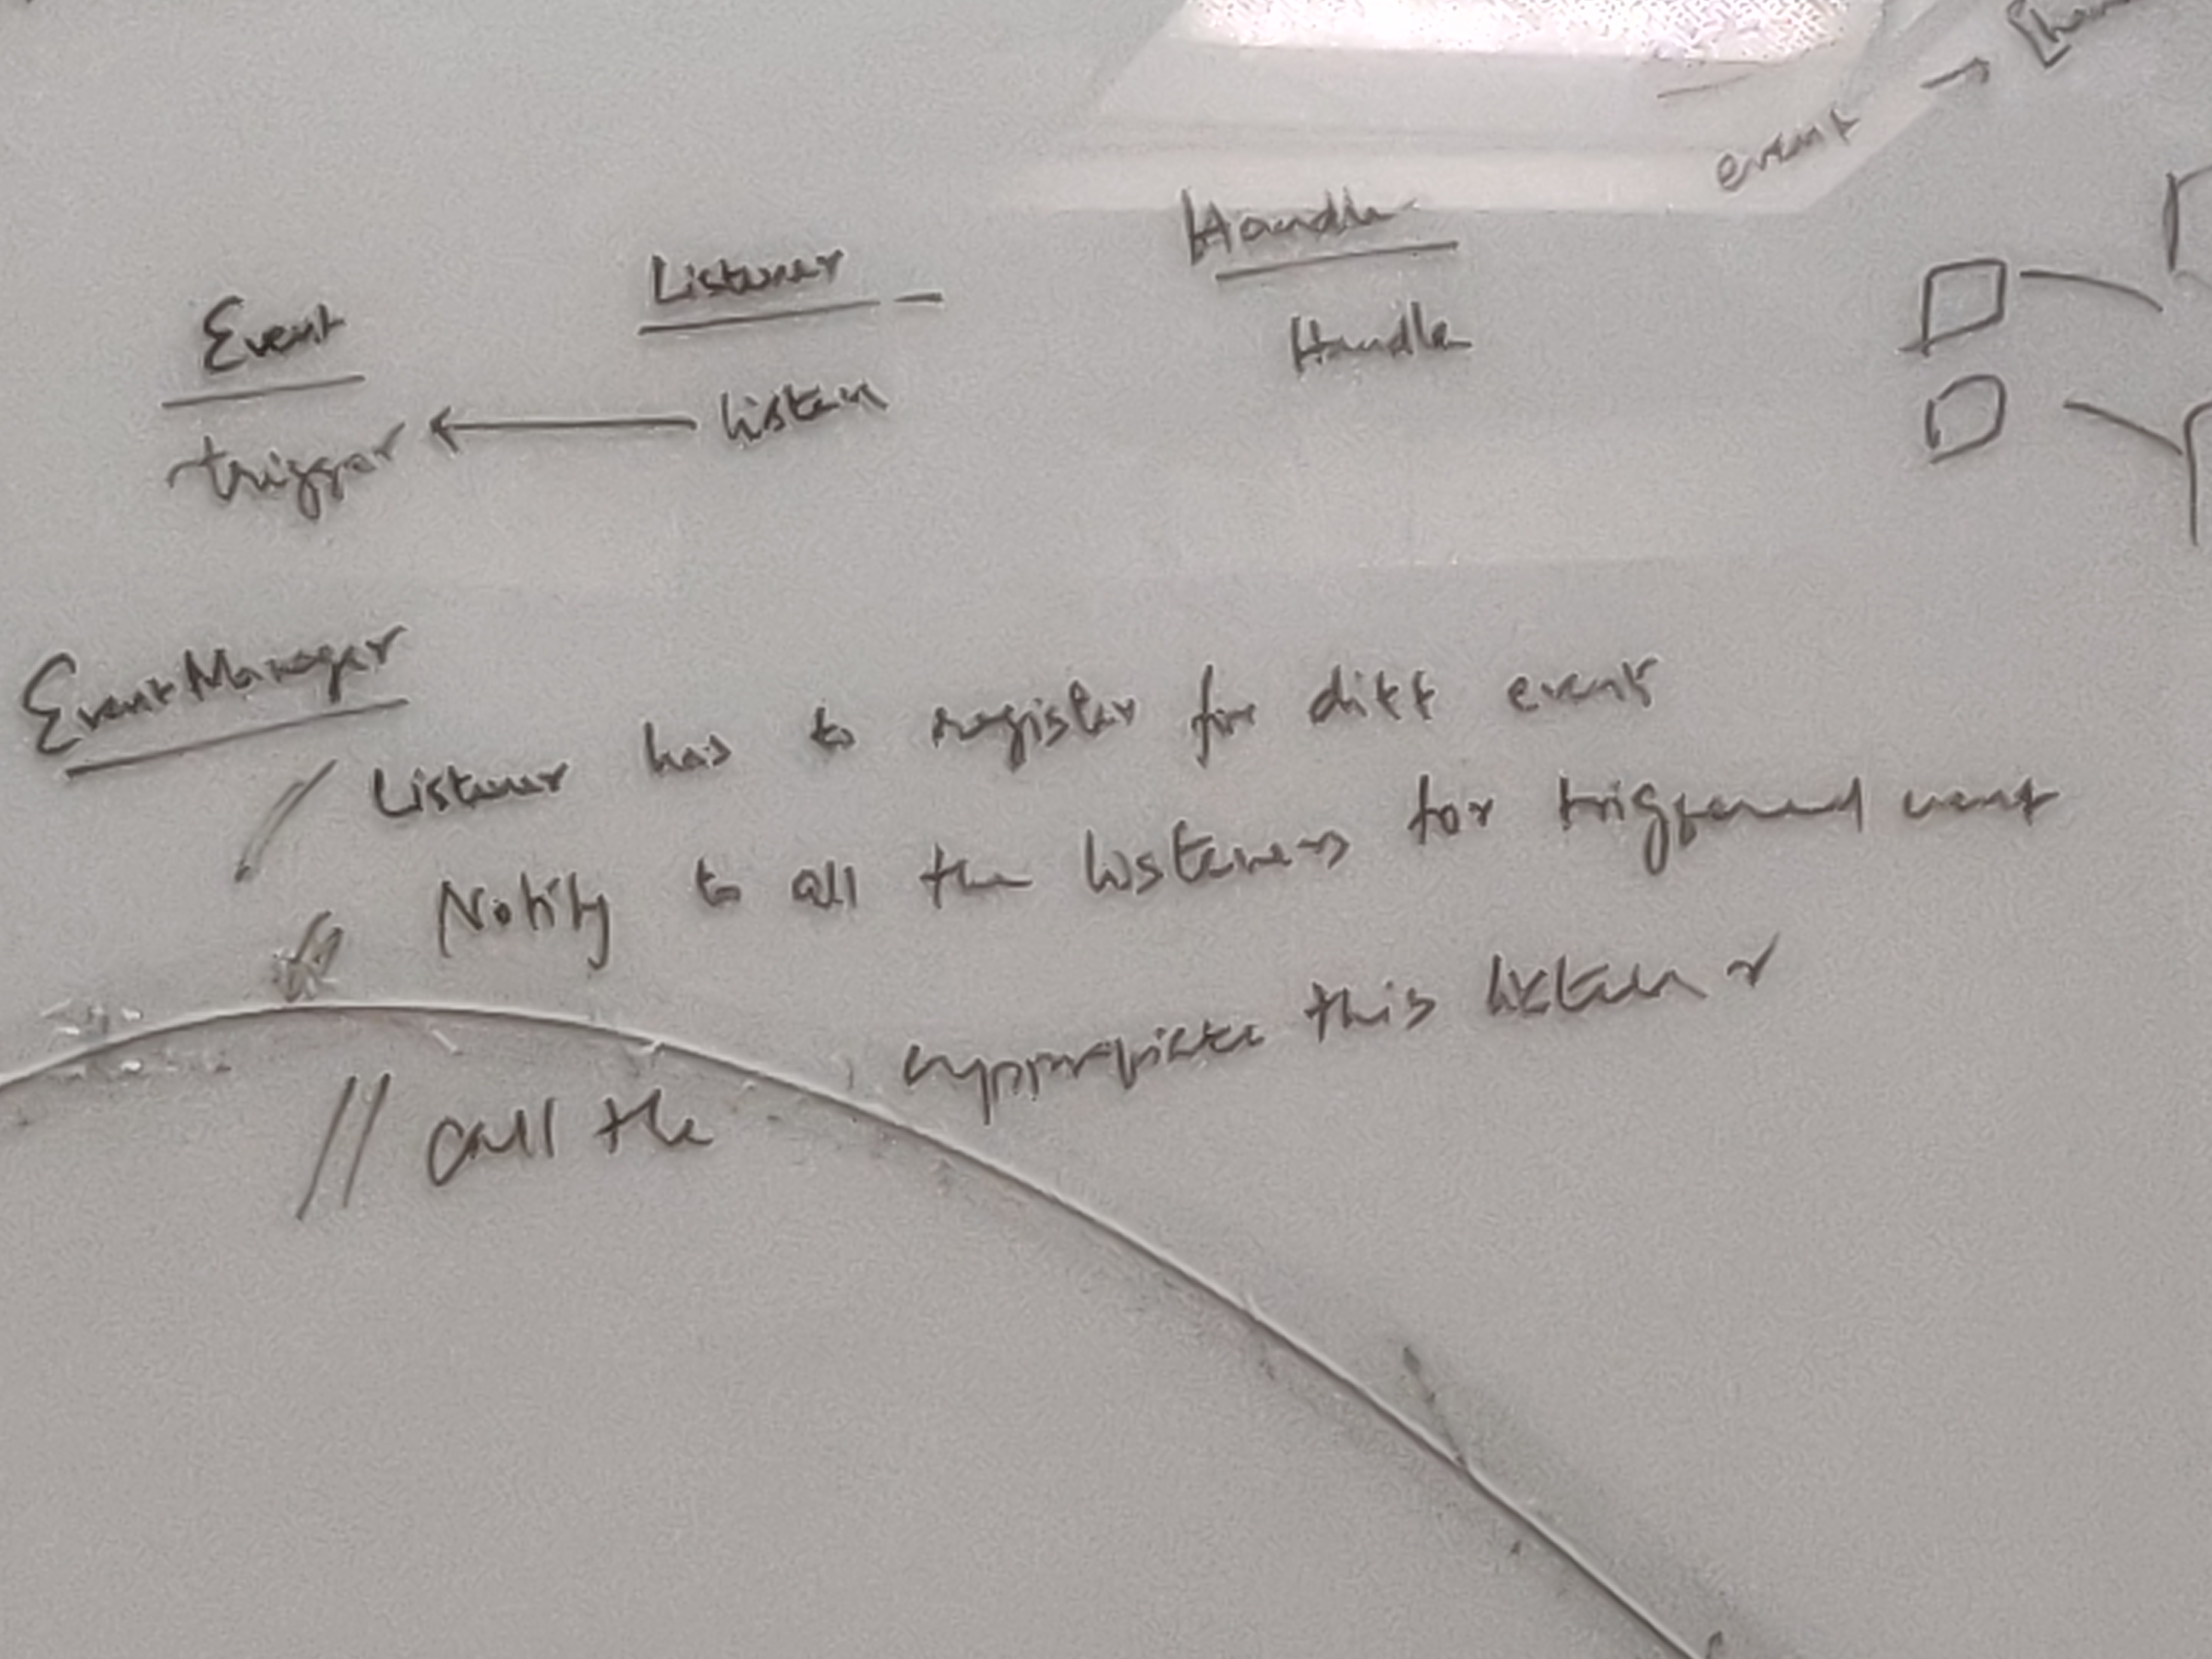 event → [han
Event Listener - Handle
trigger ← listen Handle
EventManager
Listener has to register for diff event
Notify to all the listeners for triggered event
// Call the appropriate this listener